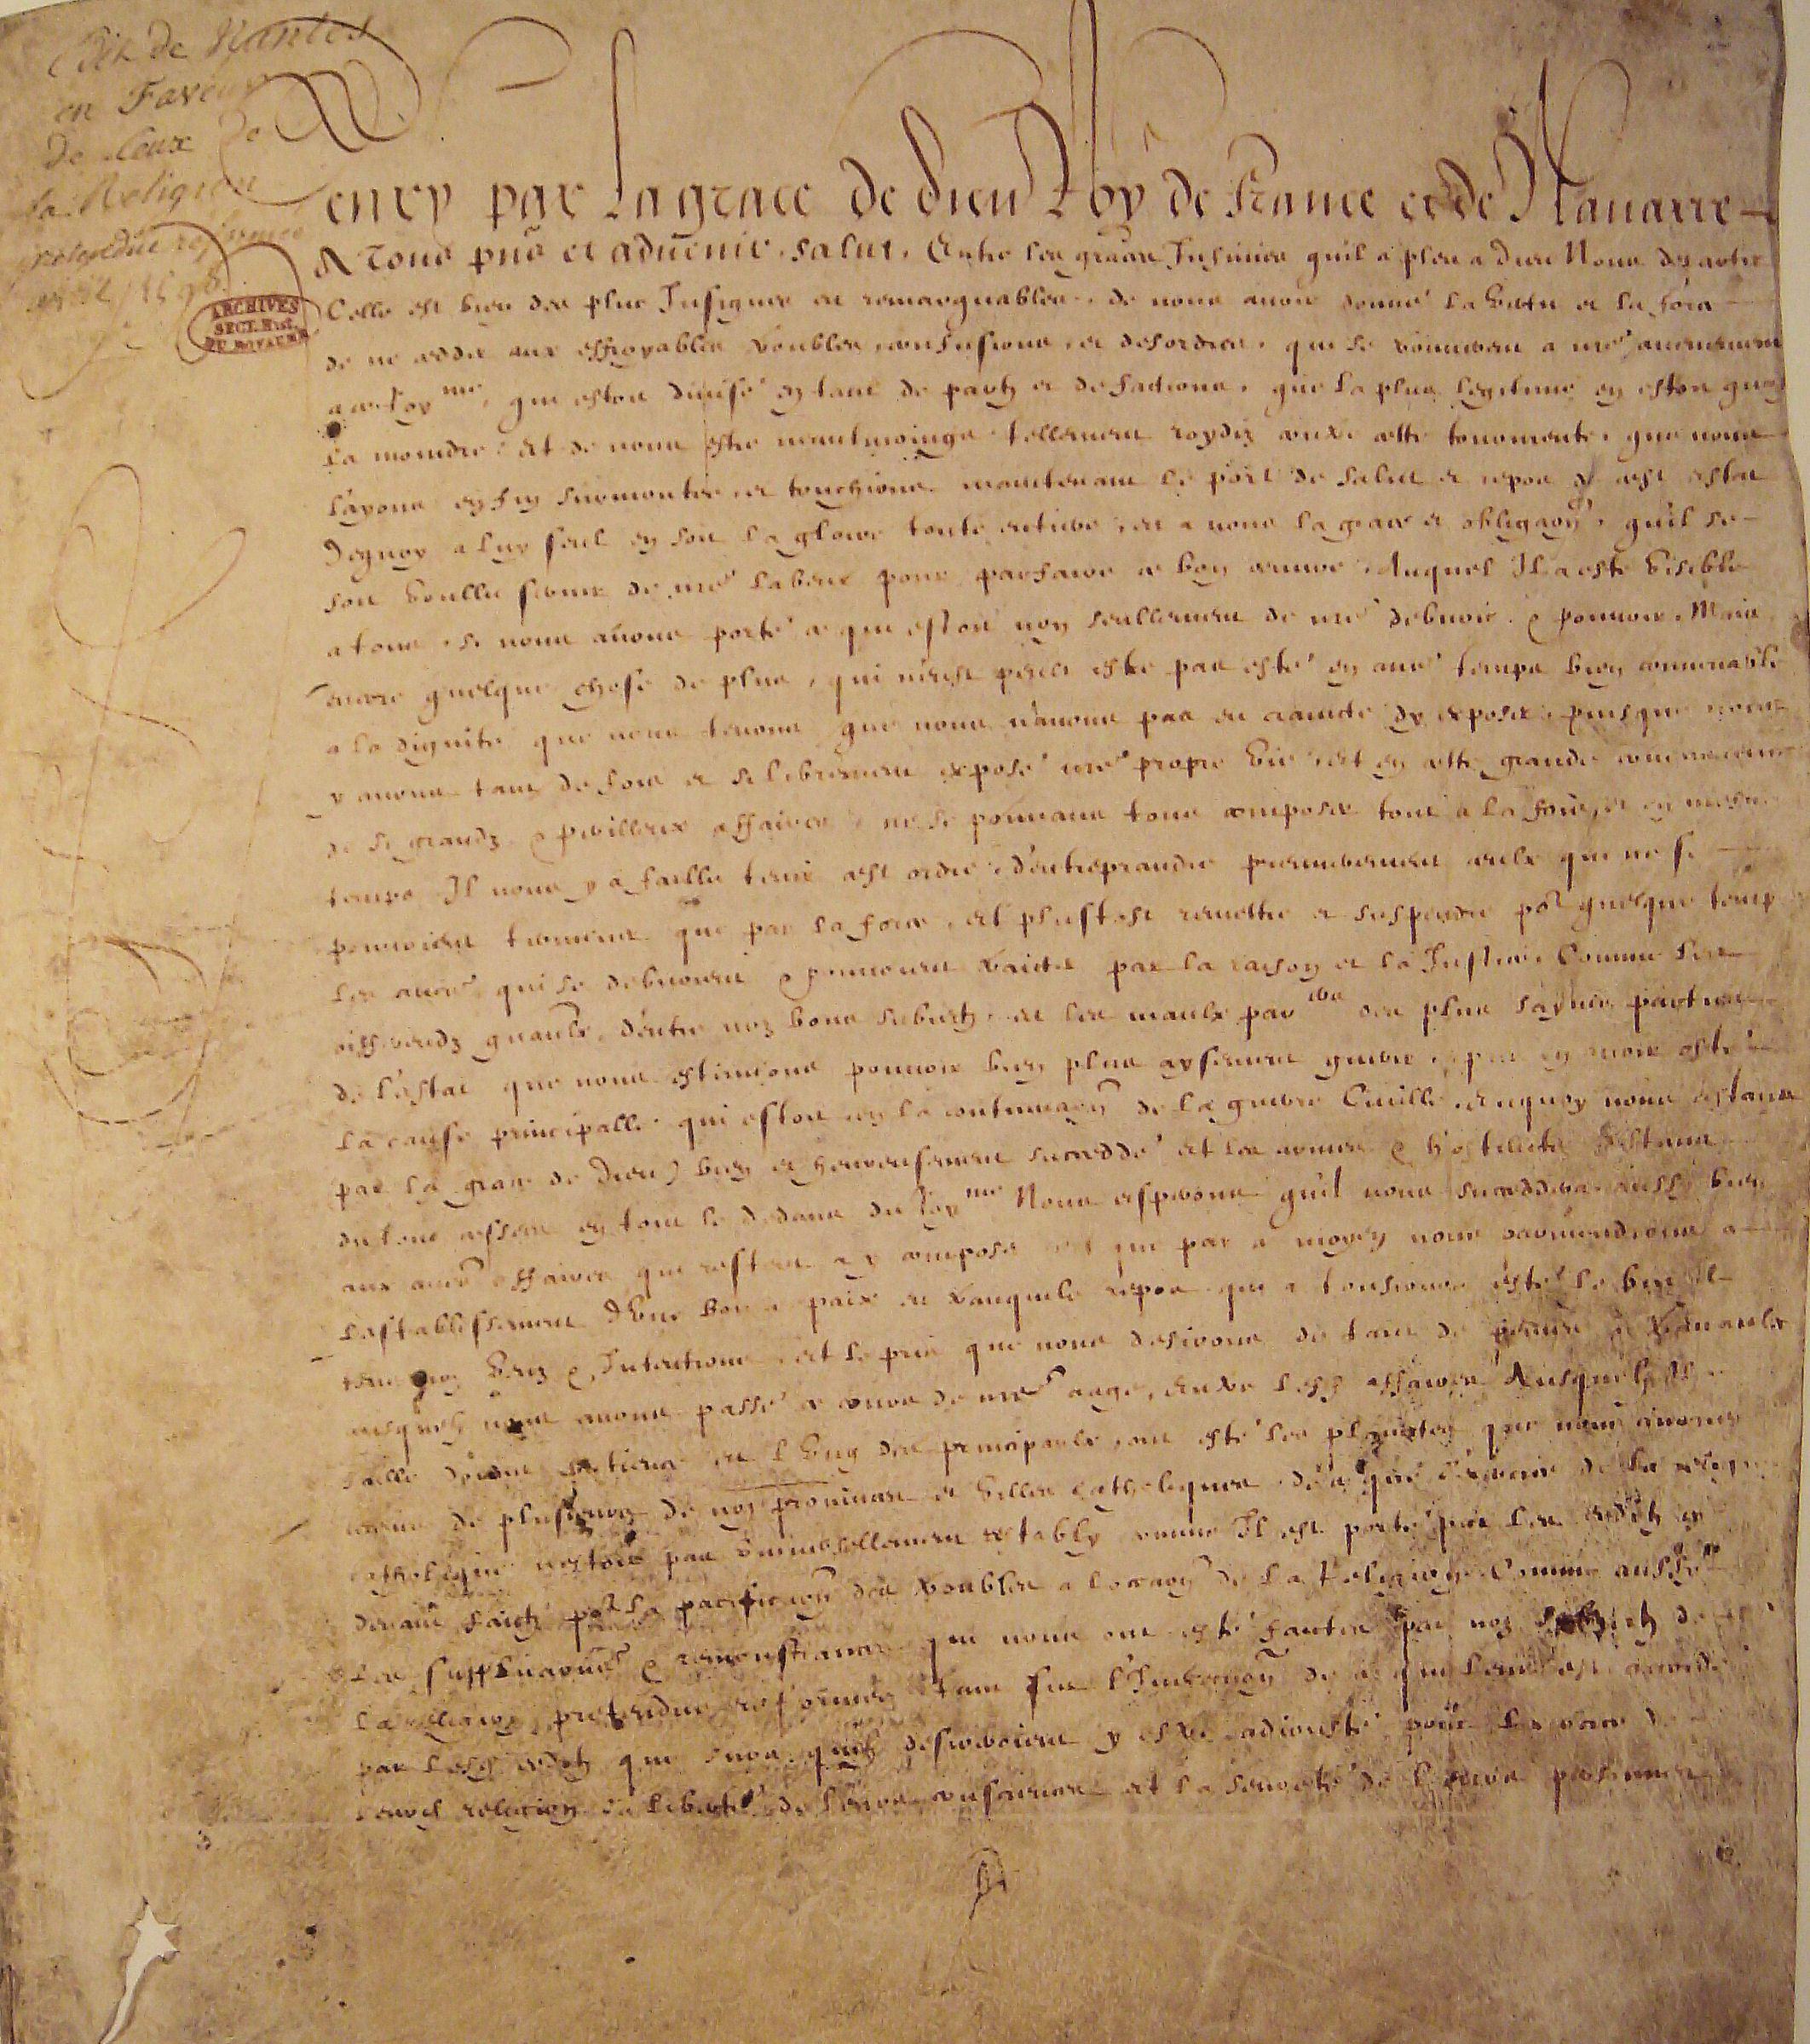 Edit de Nantes
en Faveur
de Ceux de
la Religion
pretendue reformée
ARCHIVES
SECT. Hist.
DU ROYAUME
Henry par la grace de dieu Roy de france et de Nauarre
A Tous pns et aduenir. salut. Entre les graces Infinies qu'il a pleu a dieu Nous departir
Celle est bien des plus Insignes et remarquables. de nous auoir donné la vertu et la force
de ne cedder aux effroyables troubles, confusions, et desordres, qui se trouuerent a nre aduenement
a ce Roy me, qui estoit diuisé en tant de partz et de factions, que la plus legitime en estoit quasi
la moindre. Et de nous estre neantmoings tellement roydiz contre ceste tourmente, que nous
l'ayons enfin surmontee, et touchions maintenant le port de salut et repos de cest estat
Dequoy a luy seul en soit la gloire toute entiere, et a nous la grace et obligaon, qu'il se
soit voullu seruir de nre labeur pour parfaire ce bon oeuure, Auquel Il a esté visible
a tous, si nous auons porté ce qui estoit non seullement de nre debuoir & pouuoir, Mais
encore quelque chose de plus, qui n'eust peult estre pas esté en aue temps bien conuenable
a la dignité que nous tenons, que nous n'auons pas eu craincte dy exposer, puisque nous
y auons tant de fois et si librement exposé nre propre vie, Et en ceste grande concurrence
de si grandz & perilleux affaires ne se pouuans tous composer tout a la fois, et en mesme
temps Il nous y a faillu tenir cest ordre, d'entreprandre premierement ceulx qui ne se
pouuoient terminer que par la force, Et plustost remettre et suspendre por quelque temps
les aues, qui se debuoient & pouuoient traicter par la raison et la Justice, Comme les
differendz gnaulx, d'entre noz bons subiectz, et les maulx par ers des plus saynes parties
de l'estat que nous estimions pouuoir bien plus aysement guerir, apres en auoir osté
la cause principalle qui estoit en la continuaon de la guerre Ciuille, Enquoy nous estans
par la grace de Dieu) bien et heureusement succeddé Et les armes & hostilitez Estans
du tout cessees en tout le dedans du Roy me Nous esperons qu'il nous succeddera aussy bien
aux aues affaires qui restent a y composer et que par ce moyen nous paruiendrons a
l'establissement D'vne bonne paix et tranquile repos qui a tousiours esté le but de
tous noz veuz & Intentions, Et le prix que nous desirons de tant de peines & trauaulx
ausquelz nous auons passé ce cours de nre aage, Entre lesd affaires Ausquelz Il a
faillu donner patience et l'vng des principaulx, ont esté les plainctes que nous auons
receues de plusieurs de noz prouinces et villes catholiques de ce que l'exercice de la religion
catholique n'estoit pas vniuersellement restably comme Il est porté par les edictz cy
deuant faictz por la pacificaon des troubles a l'occaon de la Religion, Comme aussy
Les supplicaons & remonstrances qui nous ont esté faictes par noz subiectz de
la religion pretendue reformee tant sur l'Inexecuon de ce qui leur est accordé
par lesd edictz que sur ce qu'ilz desireroient y estre adiousté pour l'exercice de
leurd religion, la liberté de leurs consciences et la seureté de leurs personnes